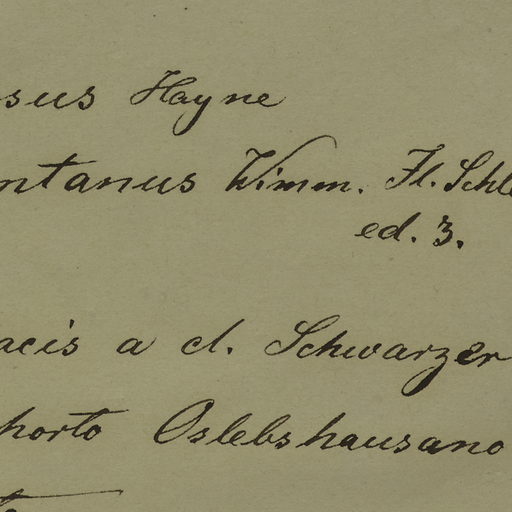 sus Hayne
ntanus Wimm. Fl. Schle
ed. 3.
acis a cl. Schwarzer
horto Oslebshausano